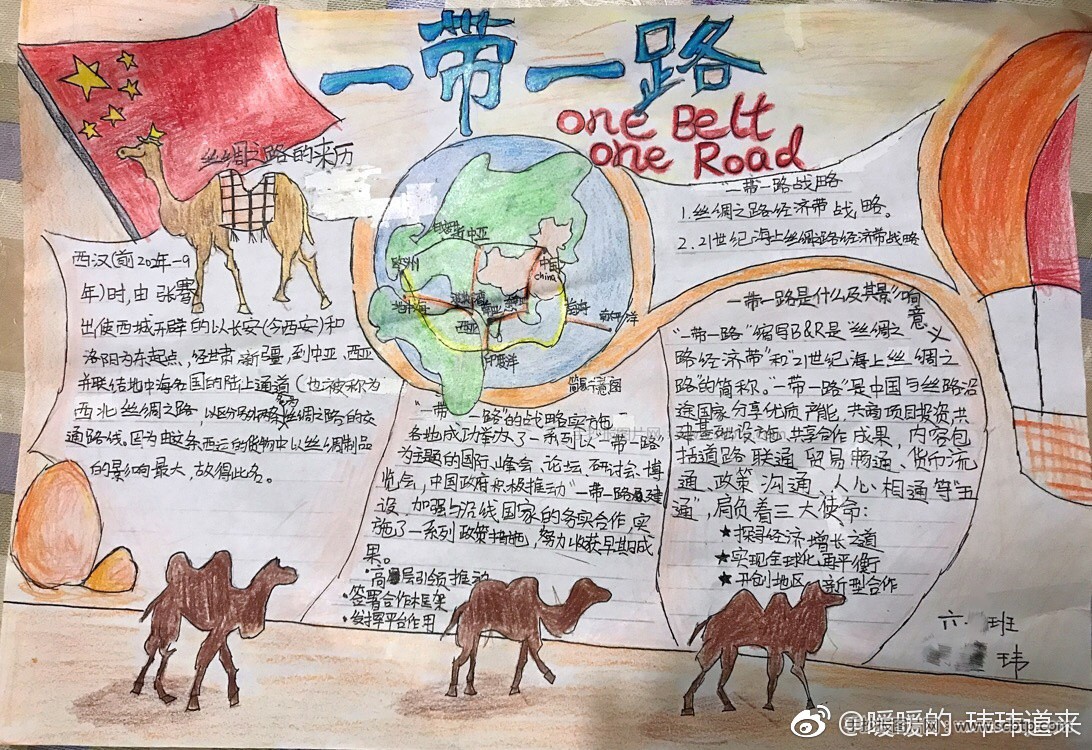 一带一路
one Belt
one Road
丝绸之路的来历
西汉(前202年-9
年)时,由张骞
出使西域开辟的以长安(今西安)和
洛阳为东起点,经甘肃、新疆,到中亚、西亚
并联结地中海各国的陆上通道(也被称为
西北丝绸之路,以区分
丝绸之路的交
通路线。因为由这条西运的货物中以丝绸制品
的影响最大,故得此名。
中亚
欧洲
中国
china
地中海
西亚
南海
南太平洋
印度洋
简易示意图
“一带一路”的战略实施
各地成功举办了一系列以“一带一路”
为主题的国际峰会、论坛、研讨会、博
览会,中国政府积极推动“一带一路”建
设,加强与沿线国家的务实合作,实
施了一系列政策措施,努力收获早期成
果。
·高层引领推动
·签署合作框架
·发挥平台作用
“一带一路战略
1.丝绸之路经济带战略。
2.21世纪海上丝绸路经济带战略
一带一路是什么及其影响
意义
“一带一路”缩写B&R是“丝绸之
路经济带”和“21世纪海上丝绸之
路”的简称。“一带一路”是中国与丝路沿
途国家分享优质产能,共商项目投资、共
建基础设施、共享合作成果,内容包
括道路联通、贸易畅通、货币流
通、政策沟通、人心相通等“五
通”,肩负着三大使命:
★探寻经济增长之道
★实现全球化再平衡
★开创地区新型合作
六·班
玮
@暖暖的-玮玮道来
www.scbtp.com